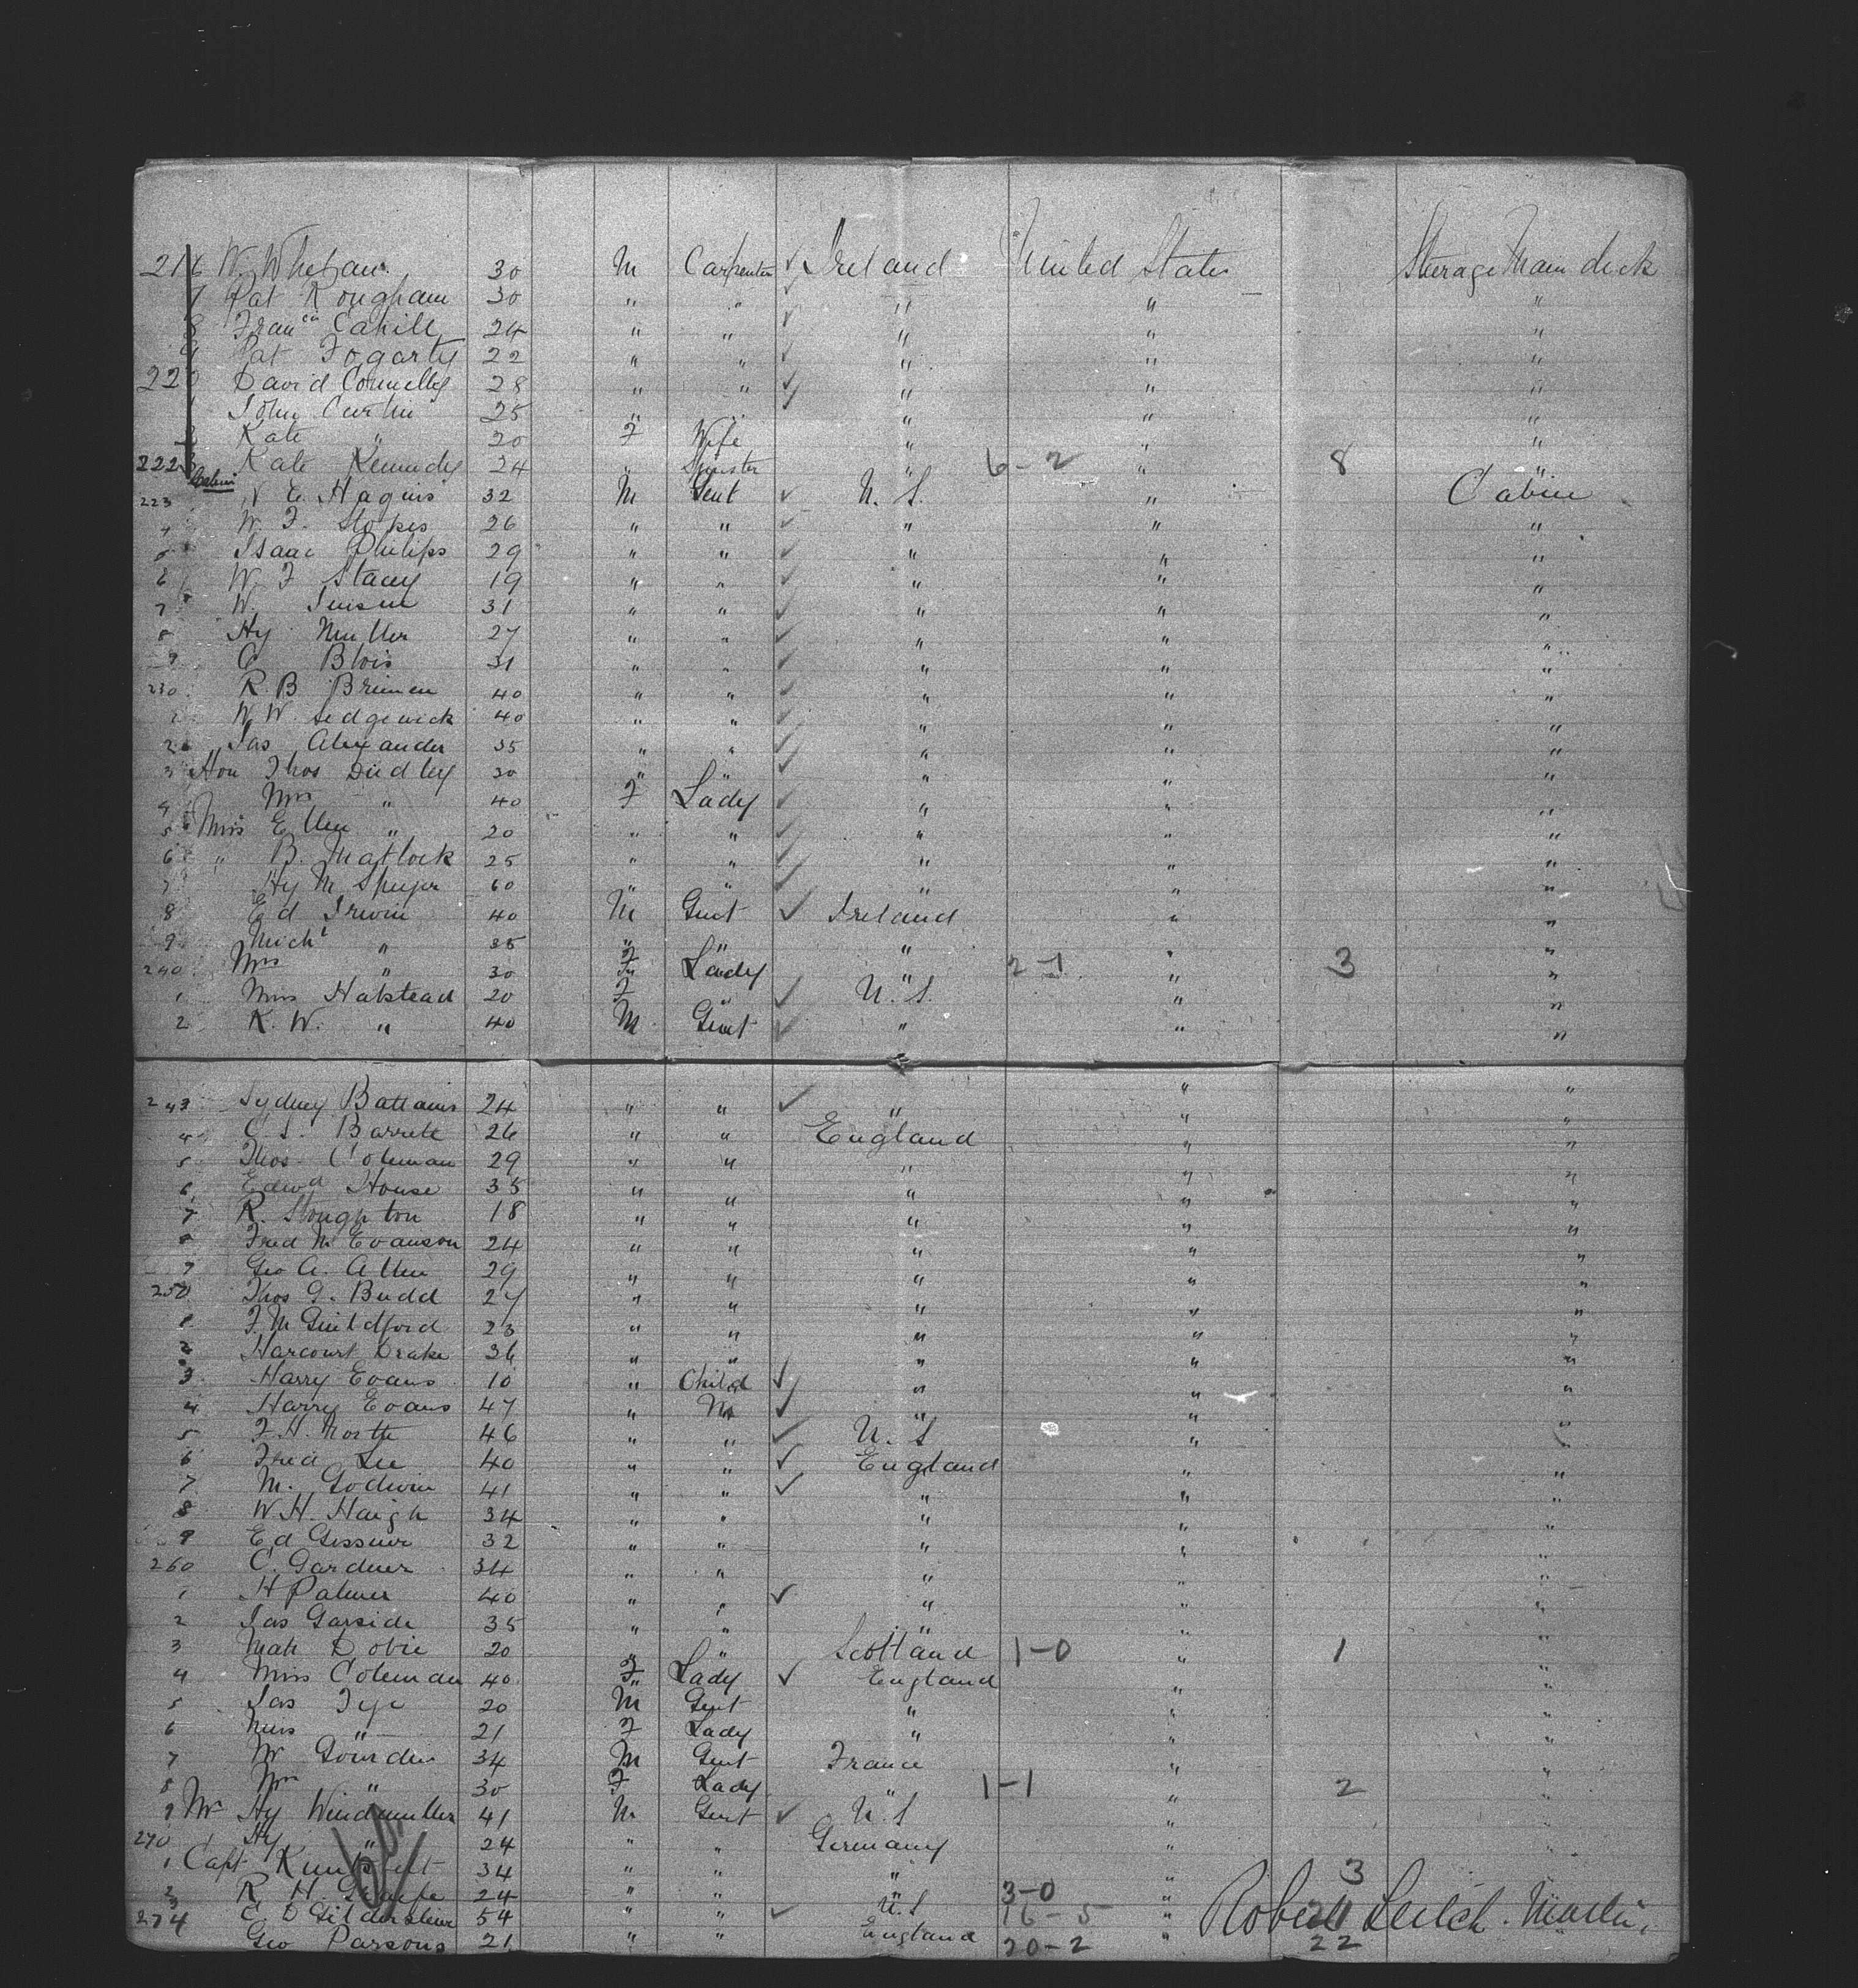 216 W. Whelan 30 M Carpenter ✓ Ireland United States Sterage Main deck
7 Pat Rougham 30 " " ✓ " " "
8 Fran cis Cahill 24 " " ✓ " " "
9 Pat Fogarty 22 " " ✓ " " "
220 David Connelly 28 " " ✓ " " "
1 John Curtin 25 " " " " "
2 Kate " 20 F Wife " " "
222 Kate Kennedy 24 " Spinster " 6-2 " 8 "
Cabin
223 N E. Haguis 32 M Gent ✓ U. S. " Cabin
4 W. F. Stokes 26 " " ✓ " " "
5 Isaac Philips 29 " " ✓ " " "
6 W. F Stacey 19 " " ✓ " " "
7 W. 31 " " ✓ " " "
8 Hy Muller 27 " " ✓ " " "
9 C Blois 31 " " ✓ " " "
230 R. B Brennen 40 " " ✓ " " "
1 W W. Sedgewick 40 " " ✓ " " "
2 Jas Alexander 35 " " ✓ " " "
3 Hon Thos Dudley 30 " " ✓ " " "
4 Mrs " 40 F Lady ✓ " " "
5 Miss Ellen " 20 " " ✓ " " "
6 " B. Matlock 25 " " ✓ " " "
7 Hy M 60 " " ✓ " " "
8 Ed Irwin 40 M Gent ✓ Ireland " "
9 Michl " 35 " " " " "
240 Mrs " 30 F Lady " 2-1 " 3 "
1 Miss Halstead 20 F " ✓ U. S. " "
2 R. W. " 40 M Gent ✓ " " "
243 Sydney Battams 24 " " ✓ " " "
4 C. S. Barrett 26 " " England " "
5 Thos. Coleman 29 " " " " "
6 Edwd House 35 " " " " "
7 R. Stoughton 18 " " " " "
8 Fred M Evanson 24 " " " " "
9 Geo A. Allen 29 " " " " "
250 Thos G. Budd 27 " " " " "
1 F. M Guildford 23 " " " " "
2 Harcourt Drake 36 " " " " "
3 Harry Evans 10 " Child ✓ " " "
4 Harry Evans 47 " M ✓ " " "
5 F. H. North 46 " " ✓ U. S " "
6 Fred Lee 40 " " ✓ England " "
7 M. Godwin 41 " " ✓ " " "
8 W. H. Haigh 34 " " " " "
9 Ed Gessner 32 " " " " "
260 C. Gardner 34 " " " " "
1 H Palmer 40 " " ✓ " " "
2 Jas Garside 35 " " " " "
3 Matt Dobie 20 " " Scotland 1-0 " 1 "
4 Miss Coleman 40 F Lady ✓ England " "
5 Jas Tye 20 M Gent " " "
6 Miss " 21 F Lady " " "
7 Mr Gourden 34 M Gent France " "
8 Mrs " 30 F Lady " 1-1 " 2 "
9 Mr Hy Windmuller 41 M Gent ✓ U. S " "
270 Hy " 24 " " Germany " "
1 Capt 34 " " " " 3
2 R. H. 24 " " " 3-0 "
3 E D Gildersleeve 54 " " ✓ U. S 16-5 " 21 Robert Leitch. Master.
274 Geo Parsons 21 " " England 20-2 " 22